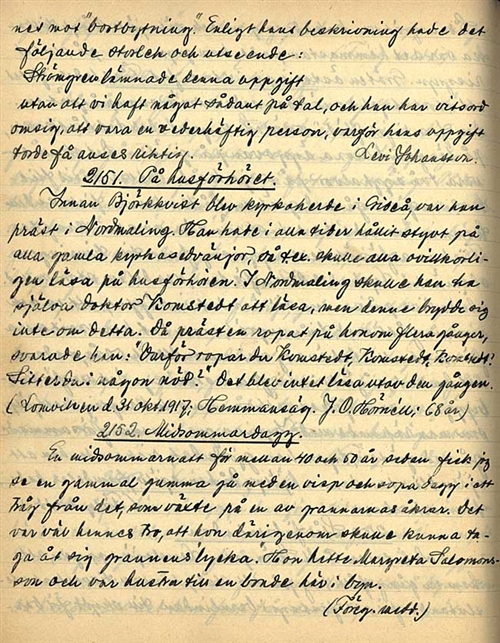 nes mot "bortbytning." Enligt hans beskrivning hade det
följande storlek och utseende:
Strömgren lämnade denna uppgift
utan att vi haft något sådant på tal, och han har vitsord
om sig, att vara en vederhäftig person, varför hans uppgift
torde få anses riktig. Levi Johansson.
2151. På husförhöret.
Innan Björkkvist blev kyrkoherde i Sideå, var han
präst i Nordmaling. Han hade i alla tider hållit styvt på
alla gamla kyrkosedvänjor, så t.ex. skulle alla ovillkorli-
gen läsa på husförhören. I Nordmaling skulle han ha
själva doktor Komstedt att läsa, men denne brydde sig
inte om detta. Då prästen ropat på honom flera gånger,
svarade han: "Varför ropar du Komstedt, Komstedt, Komstedt!
Sitter du i någon nöd?" Det blev intet läsa utav den gången.
(Lomviken d. 31 okt. 1917; Hemmansäg. J. O. Hörnell; 68 år)
2152. Midsommardagg.
En midsommarnatt för mellan 40 och 50 år sedan fick jag
se en gammal gumma gå med en visp och sopa dagg i ett
tråg från det, som växte på en av grannarnas åkrar. Det
var väl hennes tro, att hon därigenom skulle kunna ta-
ga åt sig grannens lycka. Hon hette Margreta Salomons-
son och var hustru till en bonde här i byn.
(Föreg. medd.)